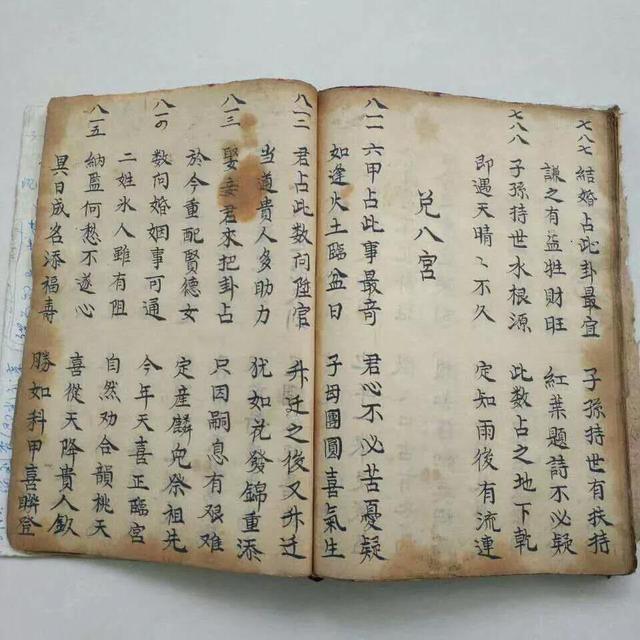 七八七 結婚占此卦最宜 子孫持世有扶持
謙之有益牲財旺 紅葉題詩不必疑
七八八 子孫持世水根源 此數占之地下乾
即遇天晴〻不久 定知雨後有流連
兌八宮
八一一 六甲占此事最奇 君心不必苦憂疑
如逢火土臨盆日 子母團圓喜氣生
八一二 君占此数问陞官 升迁之後又升迁
当道贵人多助力 犹如花發錦重添
八一三 娶妾君來把卦占 只因嗣息有艰难
於今重配賢德女 定産麟兒祭祖先
八一四 数问婚姻事可通 今年天喜正臨宮
二姓氷人雖有阻 自然劝合韻桃夭
八一五 納監何愁不遂心 喜從天降貴人欽
異日成名添福壽 勝如科甲喜聯登